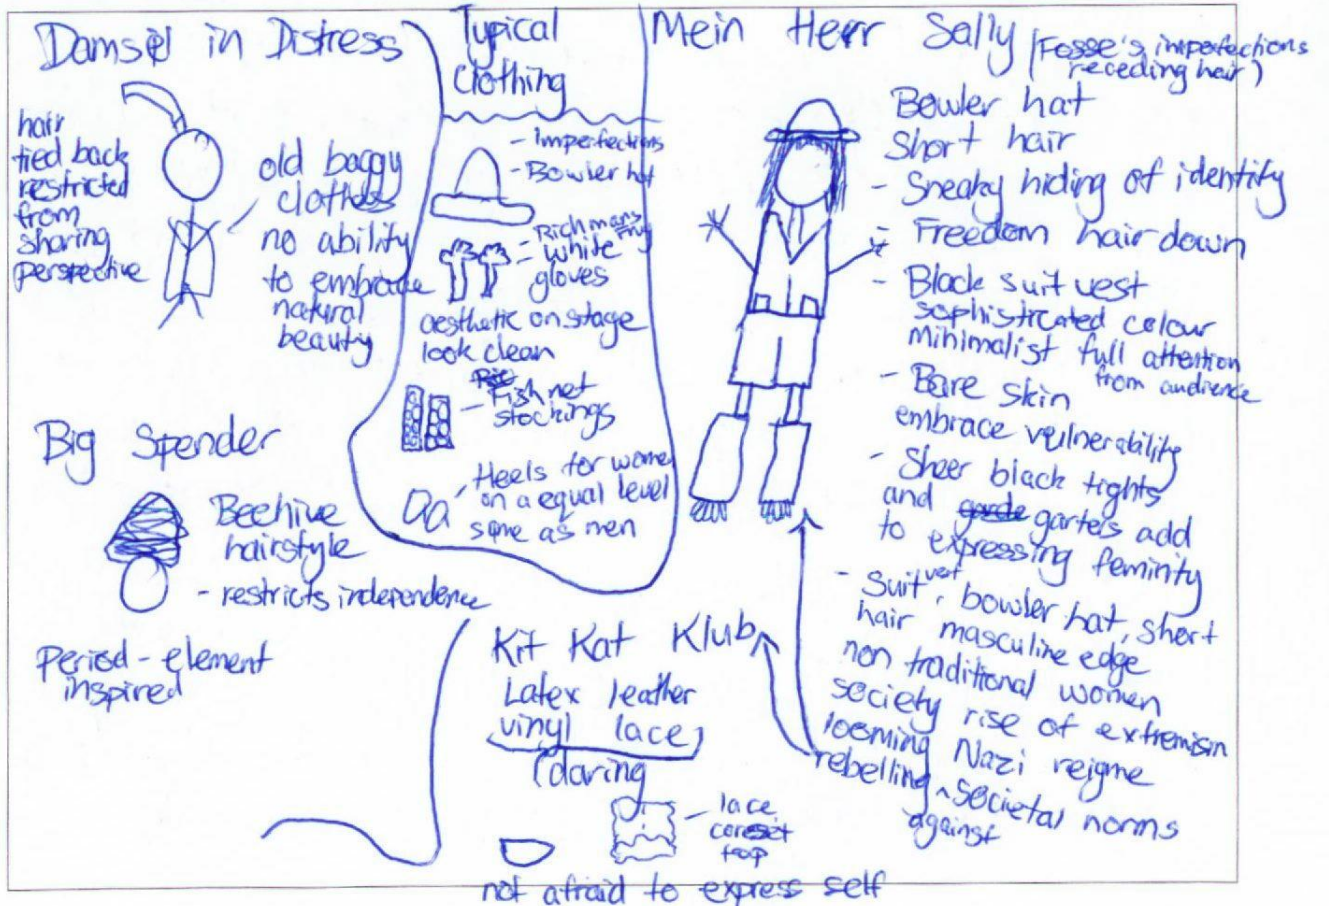 Damsel in Distress
hair
tied back
restricted
from
sharing
perspective
old baggy
clothes
no ability
to embrace
natural
beauty
Big Spender
Beehive
hairstyle
- restricts independence
Period - element
inspired
Typical
clothing
- Imperfections
- Bowler hat
- Rich mans Frug
- white
gloves
aesthetic on stage
look clean
- Fish net
stockings
Heels for women
on a equal level
same as men
Kit Kat Klub
Latex leather
vinyl lace
(daring
- lace
corset
top
not afraid to express self
Mein Herr Sally (Fosse's imperfections
receding hair)
Bowler hat
Short hair
- Sneaky hiding of identity
- Freedom hair down
- Black suit vest
sophistricated colour
minimalist full attention
from audience
- Bare skin
embrace vulnerability
- Sheer black tights
and garters add
to expressing feminity
- Suit vest, bowler hat, short
hair masculine edge
non traditional women
society rise of extremism
looming Nazi reigme
rebelling against societal norms